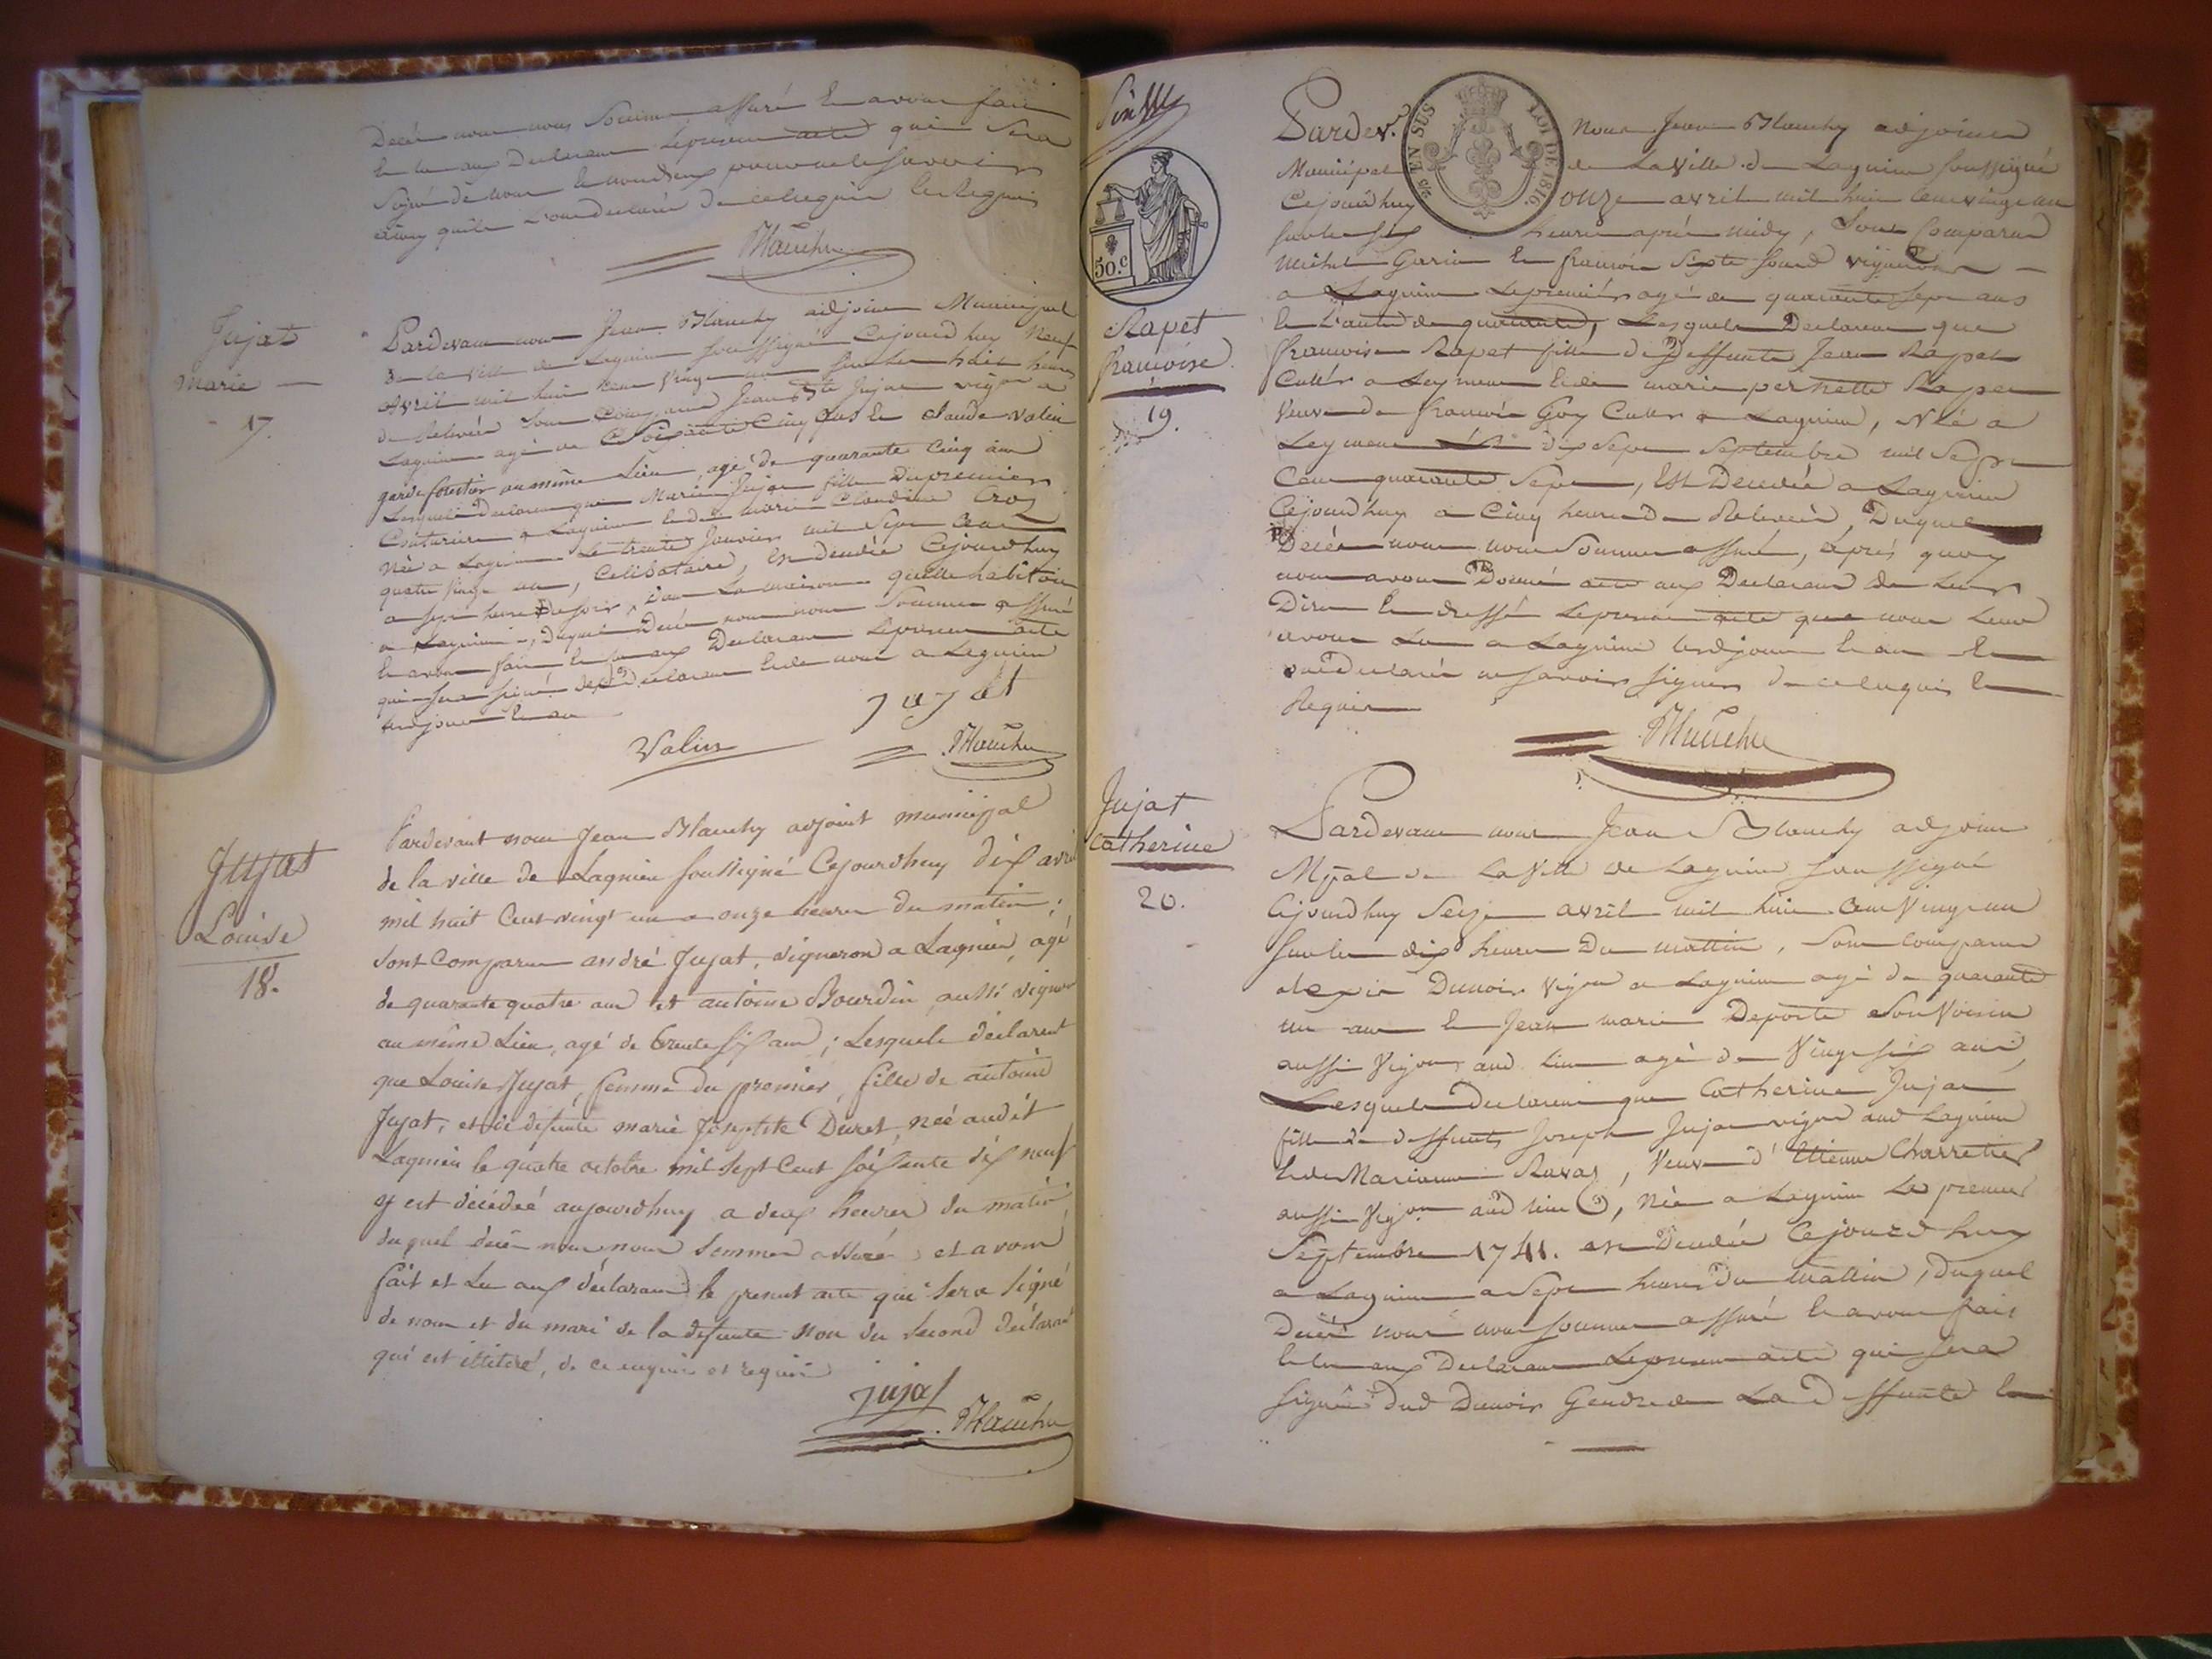 Decés nous nous Somme assuré & avons fait
& lu aux Declarans Lepresent acte qui Sera
Signé de nous & non d'eux pour ne le savoir
ainsy quils l'ont declaré de cellequis & Requis
Blanchy
Jujat
marie
17.
Pardevant nous Jean Blanchy adjoint Municipal
de la ville de Lagnieu soussigné Cejourdhuy Neuf
avril mil huit Cent vingt un sur les huit heures
de Relevée Sont Comparu Jean Bte Jujat vigon a
Lagnieu agé de Soixante Cinq ans & Claude Valin
garde forestier au même Lieu, agé de quarante Cinq ans
Lesquels Declarent que Marie Jujat fille du premier
Couturiere a Lagnieu & de marie Claudine Croz
Née a Lagnieu Le trente Janvier mil Sept Cent
quatre vingt un, Celibataire, Est Decedée Cejourdhuy
a sept heures du soir, dans La maison quelle habitoit
a Lagnieu, Duquel Decés nous nous Somme assuré
& avons fait & lu aux Declarans Lepresent acte
qui sera signé desd Declarans & de nous a Lagnieu
lesd jour & an
jujat
Valin
Blanchy
Jujat
Louise
18.
Pardevant nous Jean Blanchy adjoint municipal
de la ville de Lagnieu soussigné Cejourdhuy dix avril
mil huit Cent vingt un a onze heures du matin;
sont Comparu andré Jujat, vigneron a Lagnieu, agé
de quarante quatre ans et antoine Bourdin aussi vigneron
au même Lieu, agé de trente six ans; Lesquels déclarent
que Louise Jujat, femme du premier, fille de antoine
Jujat, et de défunte marie Josephte Duret, née audit
Lagnieu le quatre octobre mil sept Cent soixante dix neuf
y est décédée aujourdhuy a deux heures du matin
duquel décés nous nous sommes assuré et avons
fait et Lu aux déclarans le present acte qui sera signé
de nous et du mari de la défunte non du second déclarant
qui est illitéré, de ce enquis et requis
jujat
Blanchy
19.
Rapet
françoise.
50.c
EN SUS
LOI DE 1816.
Pardev.t nous Jean Blanchy adjoint
Municipal de La Ville de Lagnieu soussigné
Cejourdhuy onze avril mil huit Cent vingt un
sur les six heures aprés midy, Sont Comparus
michel Garin & françois
a Lagnieu Lepremier agé de quarante sept ans
& L'autre de quarante, Lesquels Declarent que
françoise Rapet fille de Deffunts Jean Rapet
Cultr a Leyment & de marie pernette Rapet
Veuve de françois Goy Cultr a Lagnieu, Née a
Leyment Le dix Sept Septembre mil Sept
Cent quarante Sept, Est Decedée a Lagnieu
Cejourdhuy a Cinq heures de Relevée, Duquel
Decés nous nous Sommes assuré, & aprés quoy
nous avons Donné acte aux Declarans de Leurs
Dires & dressé Lepresent acte que nous Leur
avons Lu a Lagnieu lesd jour & an &
ont declaré ne savoir signer de cellequis &
Requis
Blanchy
Jujat
Catherine
20.
Pardevant nous Jean Blanchy adjoint
Mpal de La Ville de Lagnieu soussigné
Cejourdhuy Seize avril mil huit Cent Vingt un
sur les dix heures Du mattin, Sont Comparus
alexis Dunoir Vigon a Lagnieu agé de quarante
un ans & Jean marie Deporte Son Voisin
aussi Vigon aud Lieu agé de Vingt six ans
Lesquels Declarent que Catherine Jujat
fille de deffunts Joseph Jujat vigon aud Lagnieu
& de Marianne Ravas, Veuve d'Etienne Charretier
aussi Vigon aud Lieu, Née a Lagnieu Le premier
Septembre 1741. est Decedée Cejourdhuy
a Lagnieu a Sept heures Du Mattin, Duquel
Decés nous nous sommes assuré & avons fait
& lu aux Declarans Lepresent acte qui sera
signé Dud Dunoir Gendre de La Deffunte &